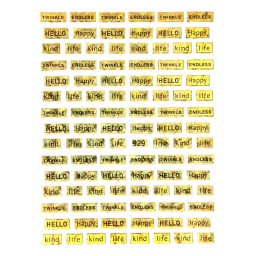 TWINKLE ENDLESS TWINKLE ENDLESS TWINKLE ENDLESS
HELLO Happy HELLO Happy HELLO Happy
kind life kind life kind life kind life
TWINKLE ENDLESS TWINKLE ENDLESS TWINKLE ENDLESS
HELLO Happy HELLO Happy HELLO Happy
kind life kind life kind life kind life
TWINKLE ENDLESS TWINKLE ENDLESS TWINKLE ENDLESS
HELLO Happy HELLO Happy HELLO Happy
kind life kind life 929 life kind life
TWINKLE ENDLESS TWINKLE ENDLESS TWINKLE ENDLESS
HELLO Happy HELLO Happy HELLO Happy
kind life kind life kind life kind life
TWINKLE ENDLESS TWINKLE ENDLESS TWINKLE ENDLESS
HELLO Happy HELLO Happy HELLO Happy
kind life kind life kind life kind life